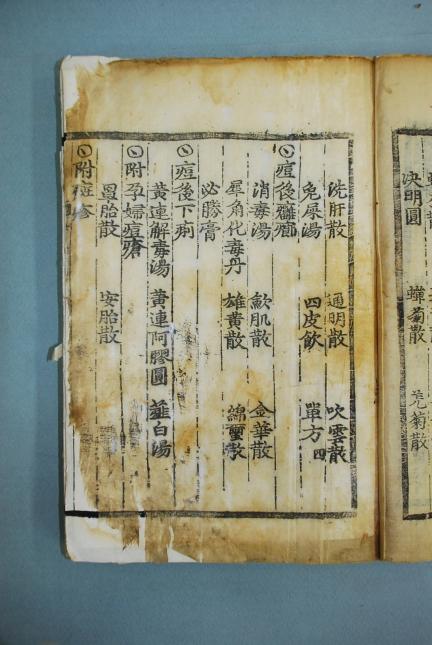 决明圓 蟬菊散 菊散
洗肝散 通明散 吹雲散
兔屎湯 四皮飮 單方四
痘後癰癤
消毒湯 歛肌散 金華散
犀角化毒丹 雄黃散 綿璽散
必勝膏
痘後下痢
黃連解毒湯 黃連阿膠圓 薤白湯
附孕婦痘瘡
罩胎散 安胎散
附癍疹